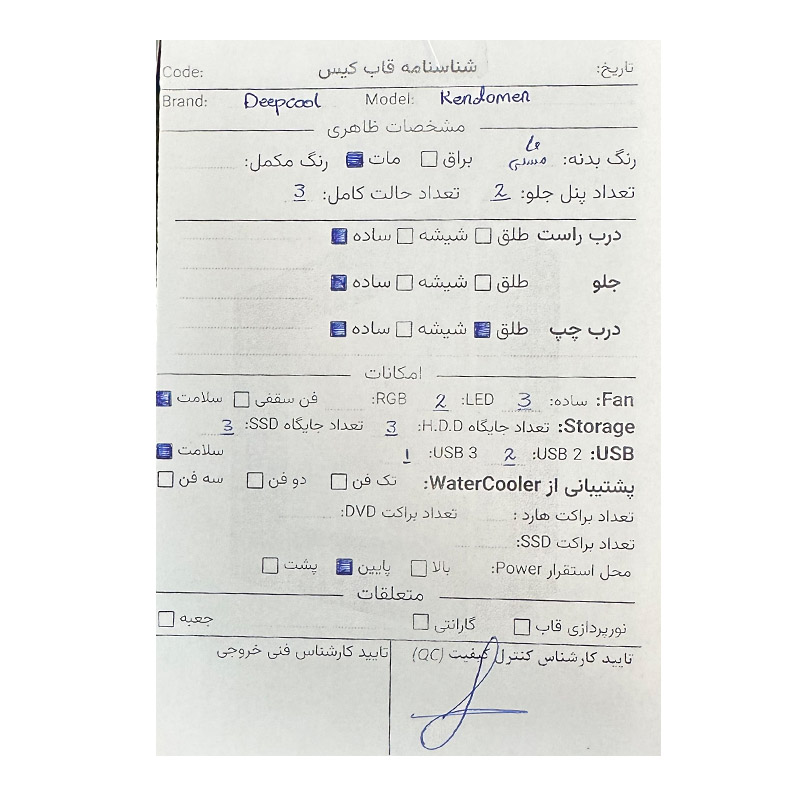 تاریخ: شناسنامه قاب کیس Code:
Brand: Deepcool Model: Kendomen
مشخصات ظاهری
رنگ بدنه: مشکی براق مات رنگ مکمل:
تعداد پنل جلو: 2 تعداد حالت کامل: 3
درب راست طلق شیشه ساده
جلو طلق شیشه ساده
درب چپ طلق شیشه ساده
امکانات
Fan: ساده: 3 LED: 2 RGB: فن سقفی سلامت
Storage: تعداد جایگاه H.D.D: 3 تعداد جایگاه SSD: 3
USB: USB 2: 2 USB 3: 1 سلامت
پشتیبانی از WaterCooler: تک فن دو فن سه فن
تعداد براکت هارد : تعداد براکت DVD:
تعداد براکت SSD:
محل استقرار Power: بالا پایین پشت
متعلقات
نورپردازی قاب گارانتی جعبه
تایید کارشناس کنترل کیفیت (QC) تایید کارشناس فنی خروجی